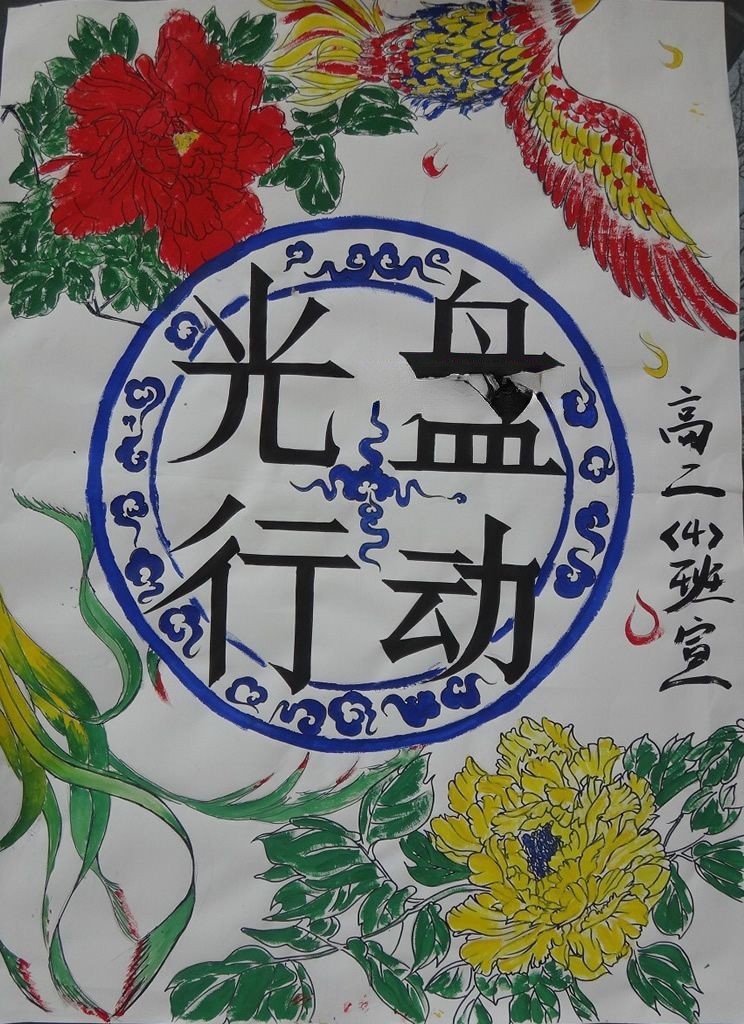 光盘
行动
高二〈4〉班宣